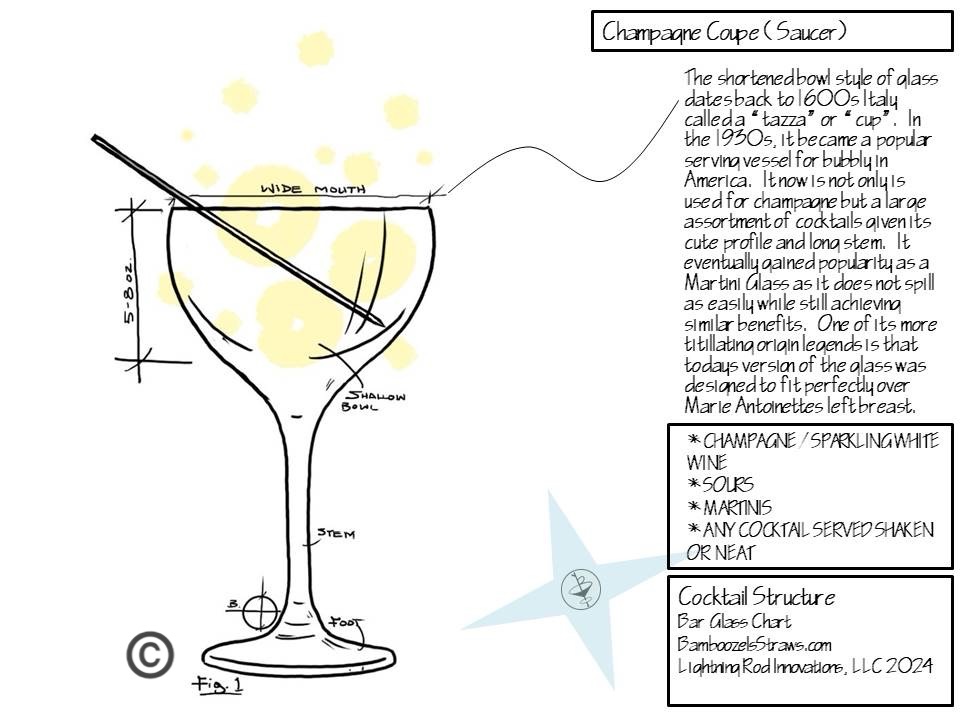 Champagne Coupe ( Saucer )
The shortened bowl style of glass
dates back to 1600s Italy
called a “ tazza” or “ cup” . In
the 1930s, it became a popular
serving vessel for bubbly in
America. It now is not only is
used for champagne but a large
assortment of cocktails given its
cute profile and long stem. It
eventually gained popularity as a
Martini Glass as it does not spill
as easily while still achieving
similar benefits. One of its more
titillating origin legends is that
todays version of the glass was
designed to fit perfectly over
Marie Antoinettes left breast.
* CHAMPAGNE / SPARKLING WHITE
WINE
* SOURS
* MARTINIS
* ANY COCKTAIL SERVED SHAKEN
OR NEAT
Cocktail Structure
Bar Glass Chart
BamboozelsStraws.com
Lightning Rod Innovations, LLC 2024
WIDE MOUTH
5-8 oz.
SHALLOW
BOWL
STEM
B.
FOOT
©
Fig. 1